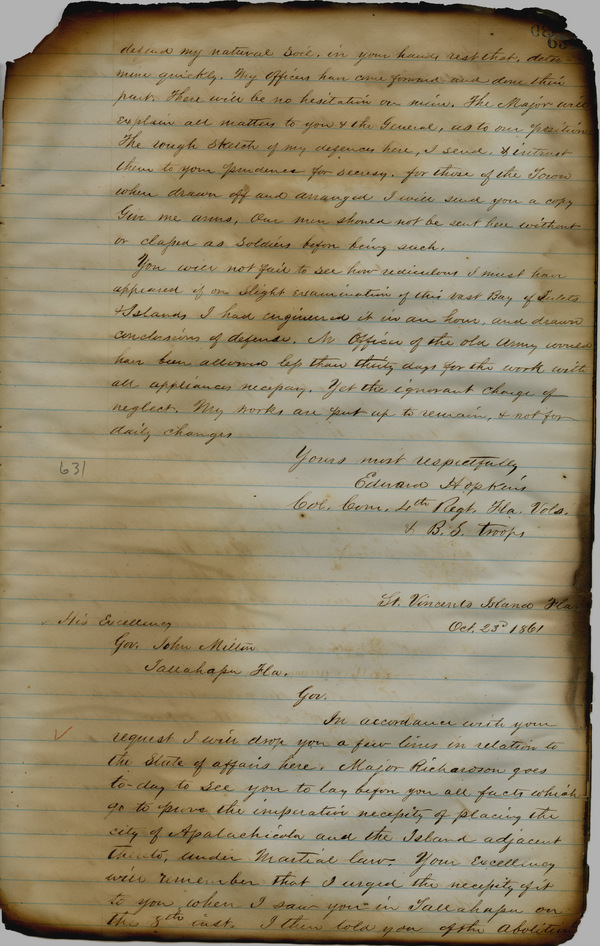 63
defend my natural soil, in your hands rest that, deter-
mine quickly. My Officers have come forward and done their
part. There will be no hesitation on mine. The Major will
explain all matters to you & the General, as to our position
The rough sketch of my defences here, I send, & intrust
them to your prudence for secresy, for those of the Town
when drawn off and arranged I will send you a copy
Give me arms, our men should not be sent here without
or classed as soldiers before being such.
You will not fail to see how rediculous I must have
appeared if on slight examination of this vast Bay of Inlets
& Islands I had engineered it in an hour, and drawn
conclusions of defense. No Officer of the old Army would
have been allowed less than thirty days for the work with
all appliances necessary. Yet the ignorant charge of
neglect. My works are put up to remain, & not for
daily changes
Yours most respectfully
Edward Hopkins
Col. Com. 4th Regt. Fla. Vols.
& B. S. troops
631
St. Vincents Island Fla
Oct. 23d 1861
His Excellency
Gov. John Milton
Tallahassee Fla.
Gov.
In accordance with your
request I will drop you a few lines in relation to
the state of affairs here. Major Richardson goes
to-day to see you to lay before you all facts which
go to prove the imperative necessity of placing the
city of Apalachicola and the Island adjacent
thereto, under Martial law. Your Excellency
will remember that I urged the necessity of it
to you when I saw you in Tallahassee on
the 8th inst. I then told you of the Abolition